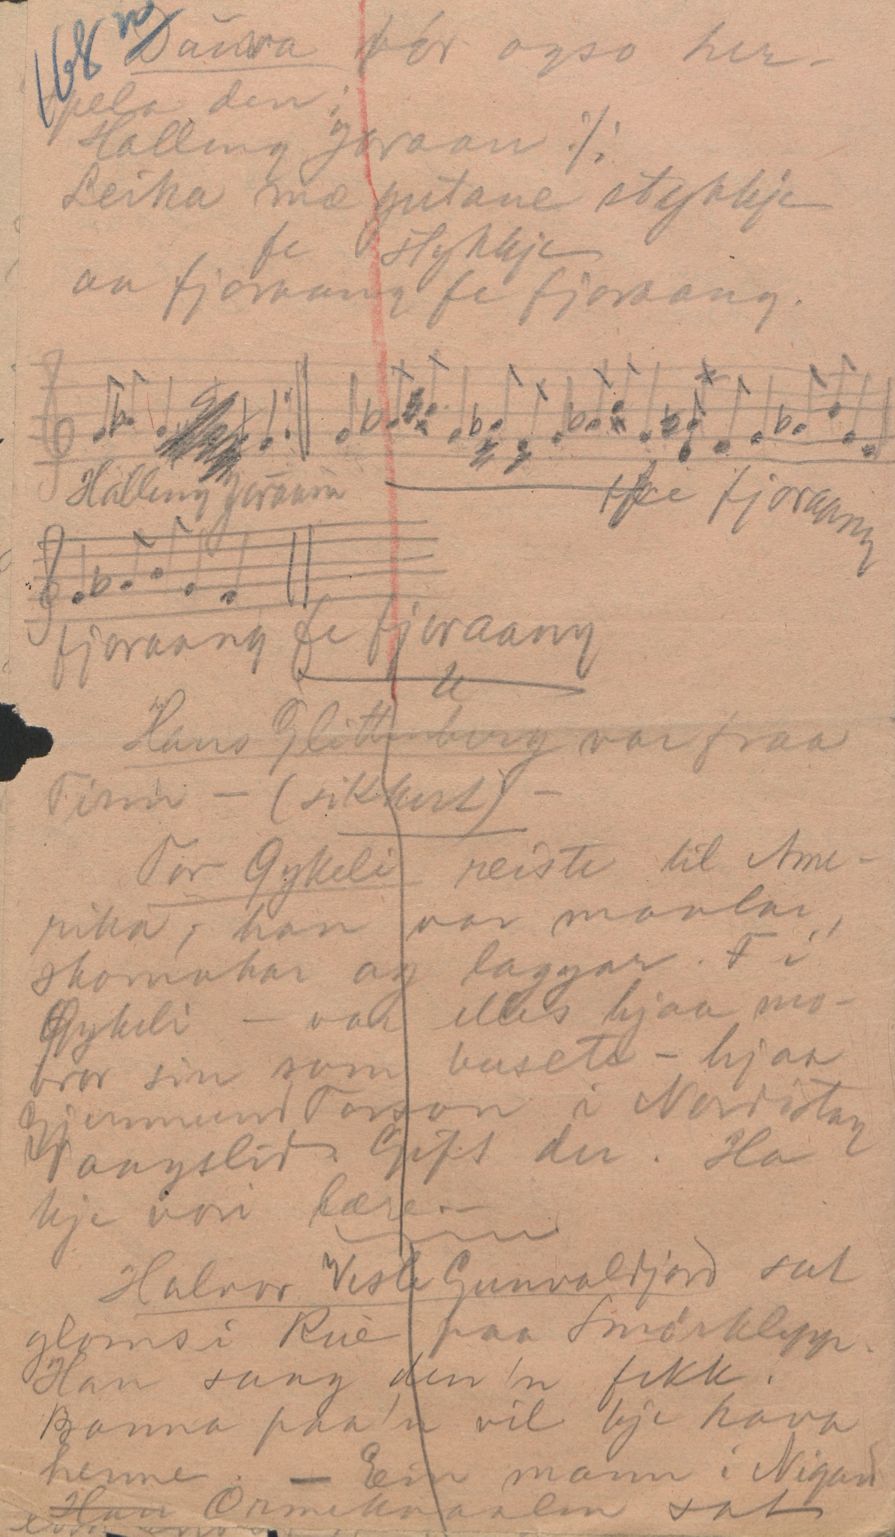 168
Dåura før også her.
spela den;
Halling Jøraan :/:
Leika mæ gutane stykkje
fe stykkje
aa fjoraang fe fjoraang.
Halling Jøraan
fe fjoraang
fjoraang fe fjoraang
Hans Glittenberg var fraa
Tinn – (sikkert) –
Tor Gykeli reiste til Ame-
rika, han var maalar,
skomakar og laggar. F i
Gykeli – var elles hjaa mo-
bror sin som busete – hjaa
Gjermund Torson i Nordistog
Vaagslid. Gift der. Ha
kje vori lære. –
Halvor Vesle Gunvaldjord sat
gloms i Rue paa Smørklepp.
Han sang den'n fekk.
Banna paa'n vil kje hava
henne. – Ein mann i Nigard
Han Ormekvaalen sat